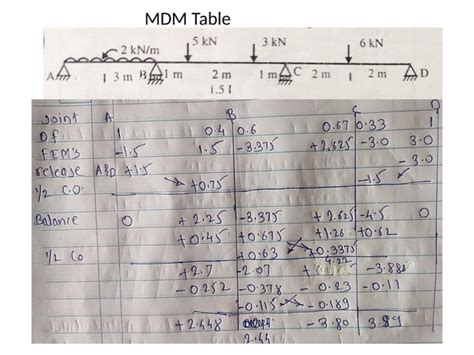 MDM Table
2 kN/m 5 kN 3 kN 6 kN
A I 3 m B 1 m 2 m 1 m C 2 m I 2 m D
1.5 I
Joint A B C D
Df 1 0.4 0.6 0.67 0.33 1
FEM's -1.5 1.5 -3.375 +2.625 -3.0 3.0
release A&D +1.5 -3.0
1/2 C.O. +0.75 -1.5
Balance 0 +2.25 -3.375 +2.625 -4.5 0
+0.45 +0.675 +1.26 +0.62
1/2 Co +0.63 +0.3375
+2.7 -2.07 + 4.22 -3.88
-0.252 -0.378 -0.23 -0.11
-0.115 -0.189
+2.448 -3.80 3.89
2.44